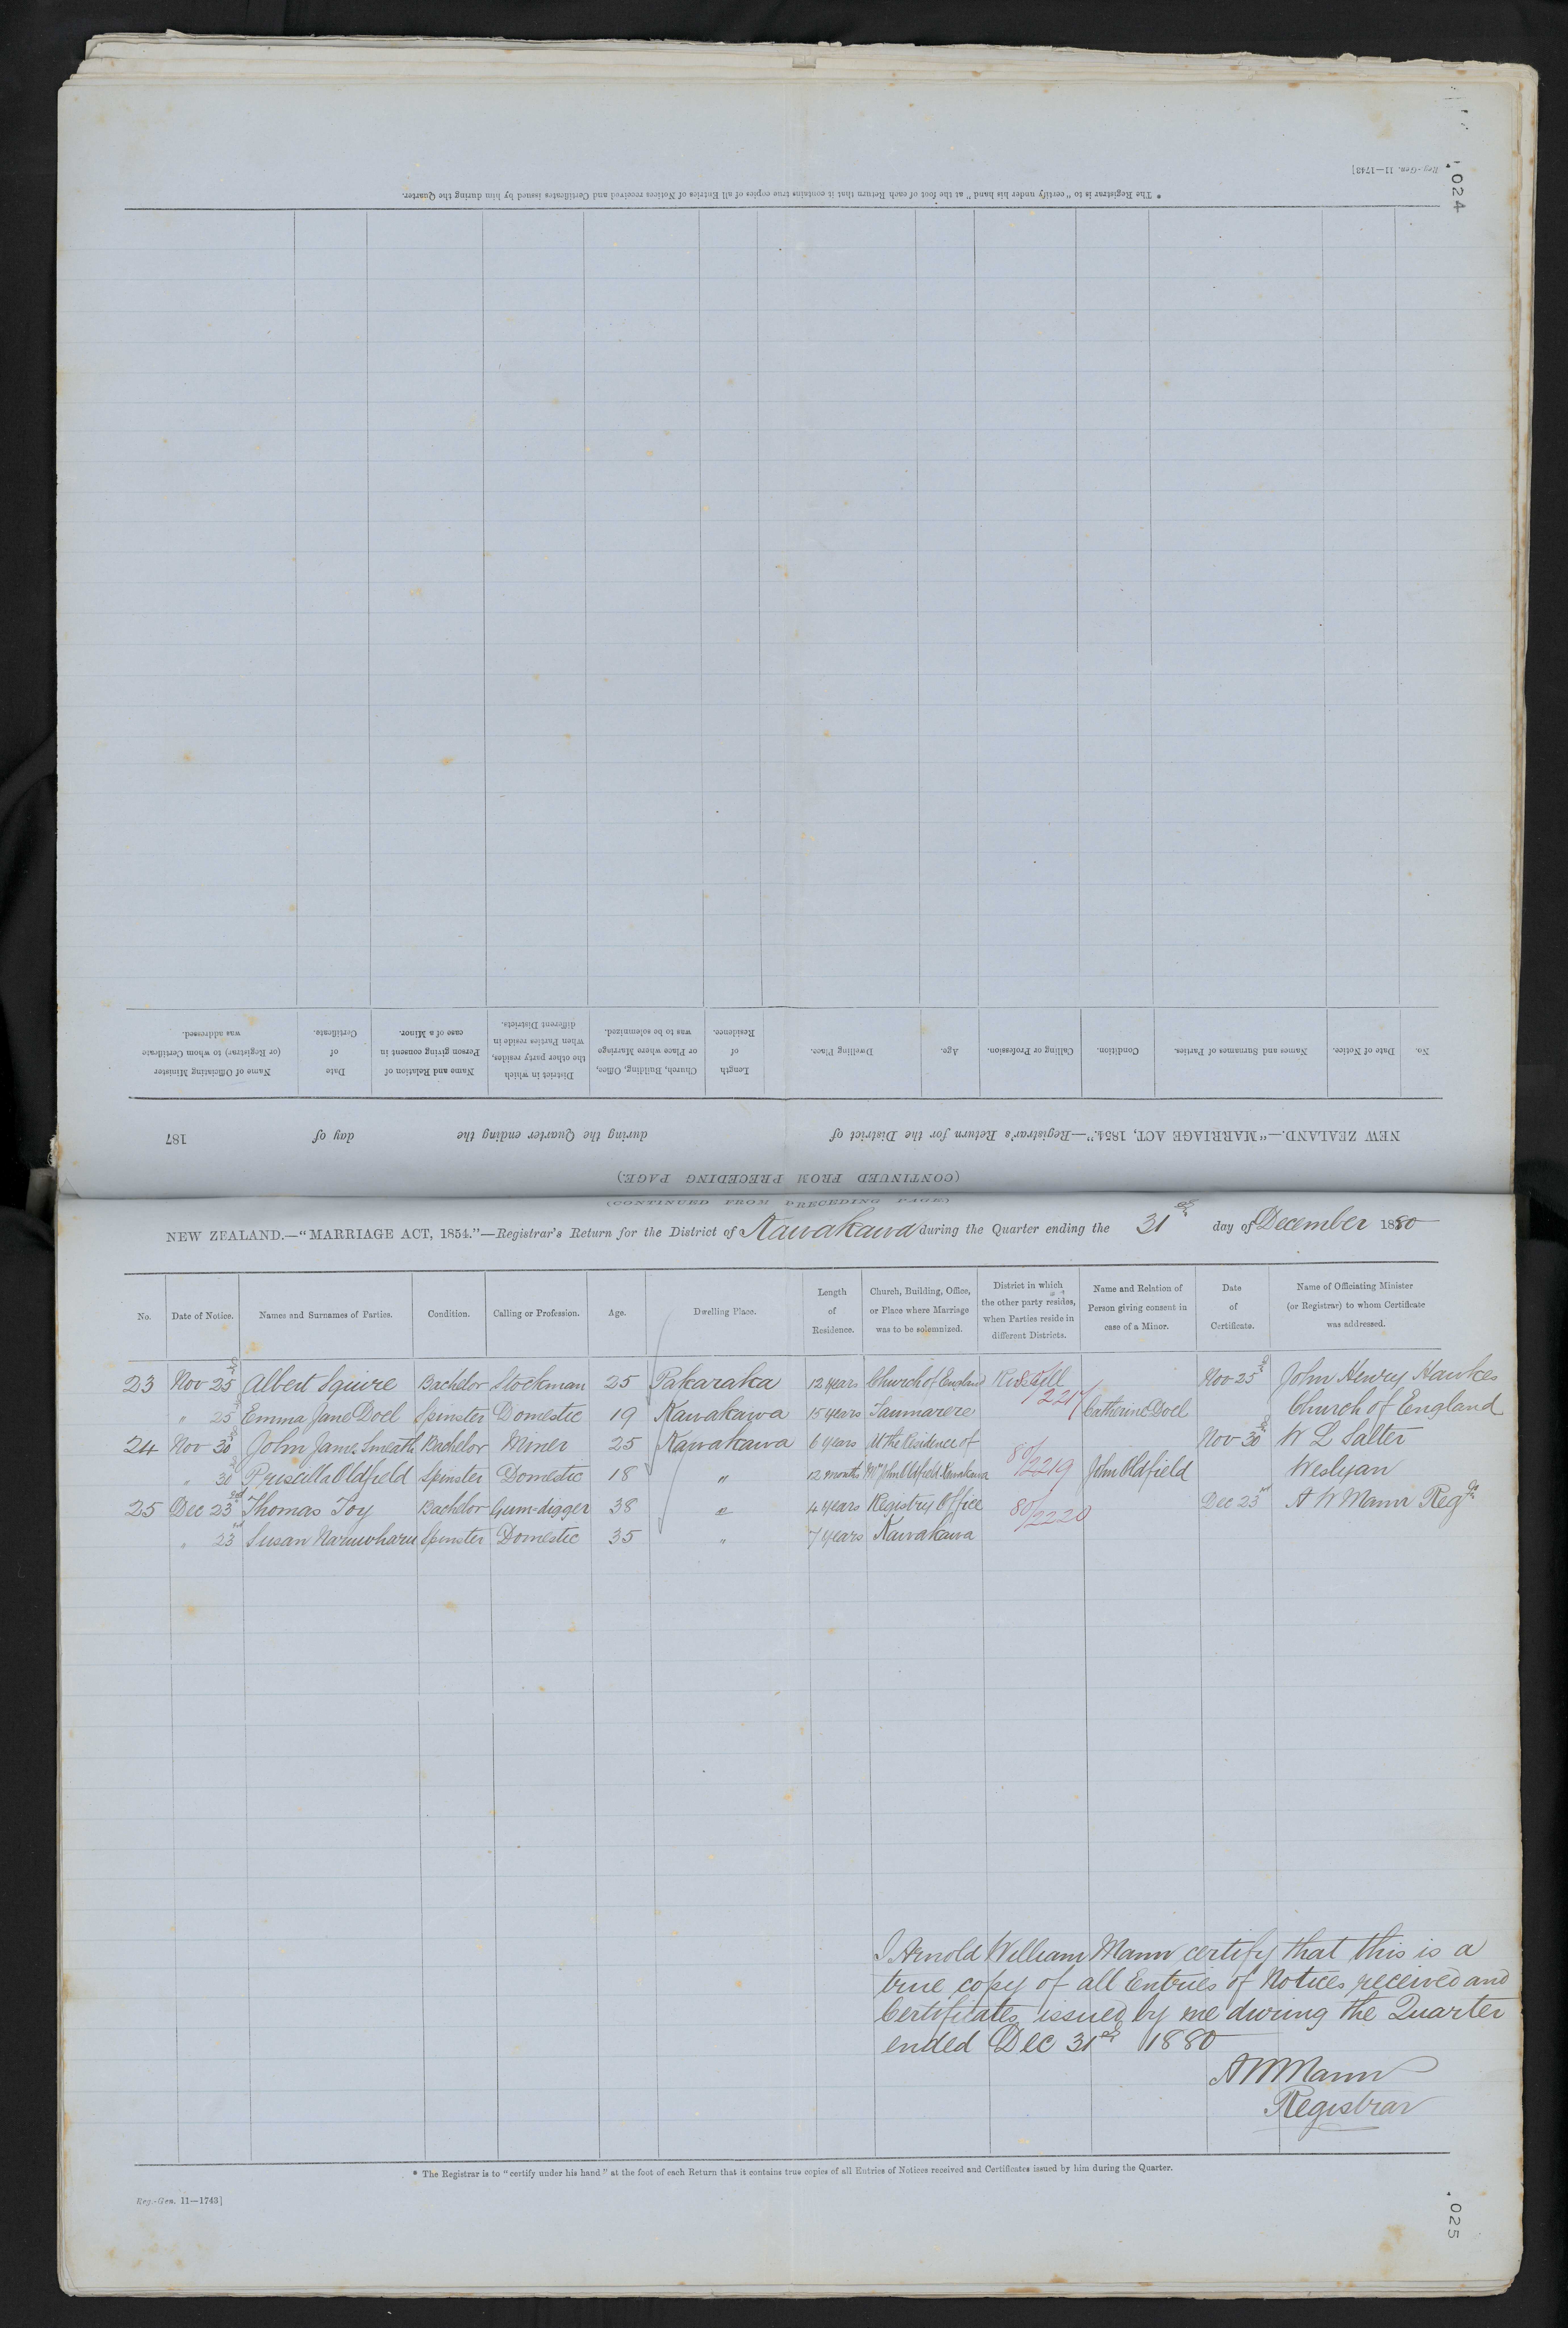 024
Reg.-Gen. 11—1743]
* The Registrar is to "certify under his hand" at the foot of each Return that it contains true copies of all Entries of Notices received and Certificates issued by him during the Quarter.
(CONTINUED FROM PRECEDING PAGE.)
NEW ZEALAND.—"MARRIAGE ACT, 1854."—Registrar's Return for the District of during the Quarter ending the day of 187
No. Date of Notice. Names and Surnames of Parties. Condition. Calling or Profession. Age. Dwelling Place. Length of Residence. Church, Building, Office, or Place where Marriage was to be solemnized. District in which the other party resides, when Parties reside in different Districts. Name and Relation of Person giving consent in case of a Minor. Date of Certificate. Name of Officiating Minister (or Registrar) to whom Certificate was addressed.
(CONTINUED FROM PRECEDING PAGE)
NEW ZEALAND.—"MARRIAGE ACT, 1854."—Registrar's Return for the District of Kawakawa during the Quarter ending the 31st day of December 1880
No. Date of Notice. Names and Surnames of Parties. Condition. Calling or Profession. Age. Dwelling Place. Length of Residence. Church, Building, Office, or Place where Marriage was to be solemnized. District in which the other party resides, when Parties reside in different Districts. Name and Relation of Person giving consent in case of a Minor. Date of Certificate. Name of Officiating Minister (or Registrar) to whom Certificate was addressed.
23 Nov 25th Albert Squire Bachelor Stockman 25 Pakaraka 12 years Church of England Nov 25th John Henry Hawkes
" 25th Emma Jane Doel Spinster Domestic 19 Kawakawa 15 years Taumarere Catherine Doel Church of England
24 Nov 30th John James Smeath Bachelor Miner 25 Kawakawa 6 years At the Residence of Nov 30th W L Salter
" Priscilla Oldfield Spinster Domestic 18 " 12 months Mr John Oldfield Kawakawa 80/2219 John Oldfield Weslyan
25 Dec 23rd Thomas Toy Bachelor Gum-digger 38 " 4 years Registry Office 80/2220 Dec 23rd A W Mann Regr
" 23rd Susan Naruwharu Spinster Domestic 35 " 7 years Kawakawa
I Arnold William Mann certify that this is a
true copy of all Entries of Notices received and
Certificates issued by me during the Quarter
ended Dec 31st 1880
A W Mann
Registrar
* The Registrar is to "certify under his hand" at the foot of each Return that it contains true copies of all Entries of Notices received and Certificates issued by him during the Quarter.
Reg.-Gen. 11—1743]
025